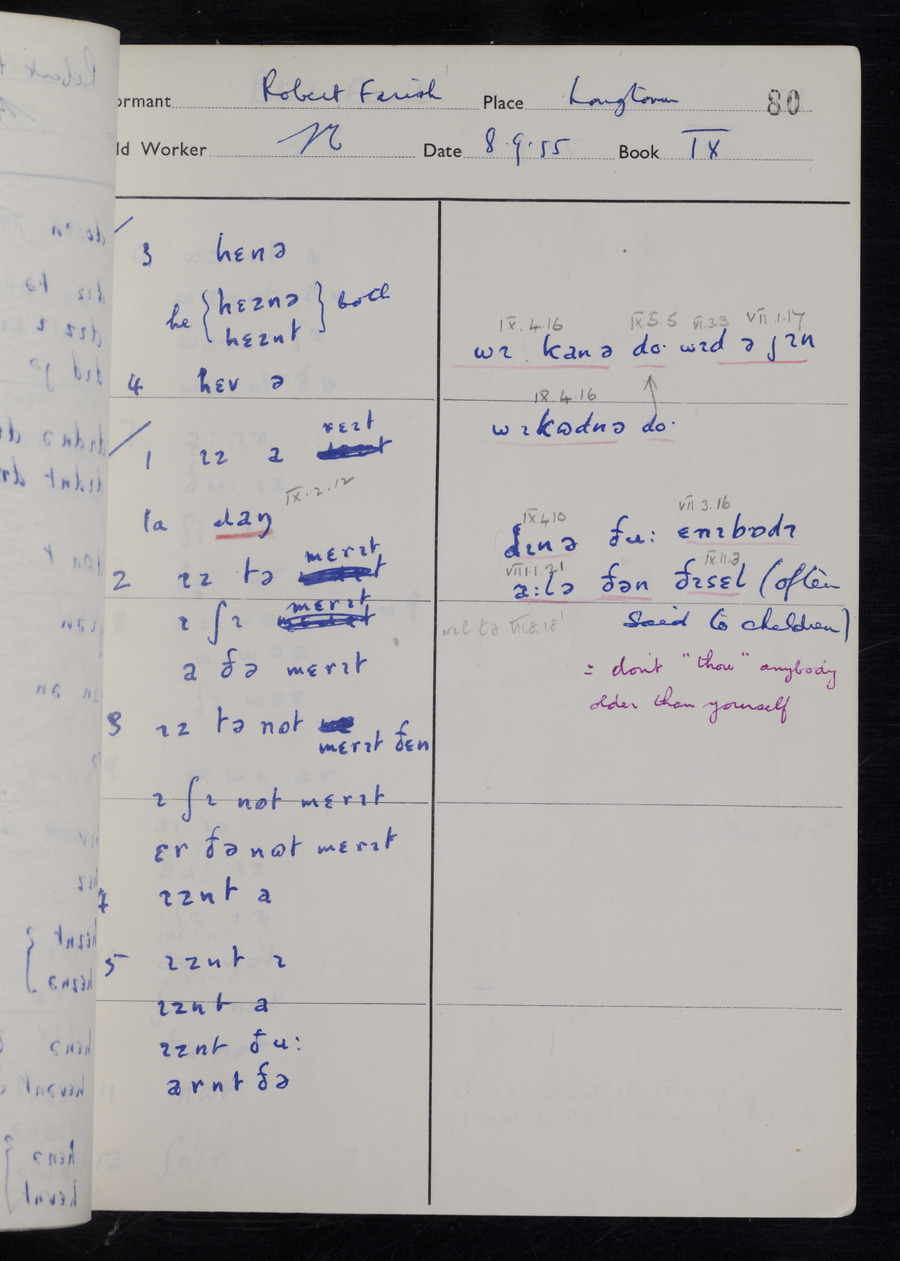 ormant Robert Farish Place Longtown 80
ld Worker Date 8.9.55 Book IX
3 hɛnə
he { hɛznə } both
hɛznt
4 hɛv ə
1 ɪz a mɛrɪt
IX.2.12
1a daŋ
2 ɪz tə mɛrɪt
ɪ ʃɪ mɛrɪt
a ðə mɛrɪt
3 ɪz tə nɒt
mɛrɪt ðɛn
ɪ ʃɪ nɒt mɛrɪt
ɛr ðə nɒt mɛrɪt
ɪznt a
5 ɪznt ɪ
ɪznt a
ɪznt ðu:
ɑrnt ðə
IX.4.16 IX.5.5 VI.3.3 VII.1.17
wɪ kanə do· wɪd ə ʃɪn
18.4.16
wɪ kɒdnə do·
IX.4.10 VII.3.16
dɪnə ðu: ɛnɪbɒdɪ
VIII.1.21 IX.11.3
a:lə ðən ðɪsɛl (often
said to children)
VI.8.18
= don't "thou" anybody
older than yourself